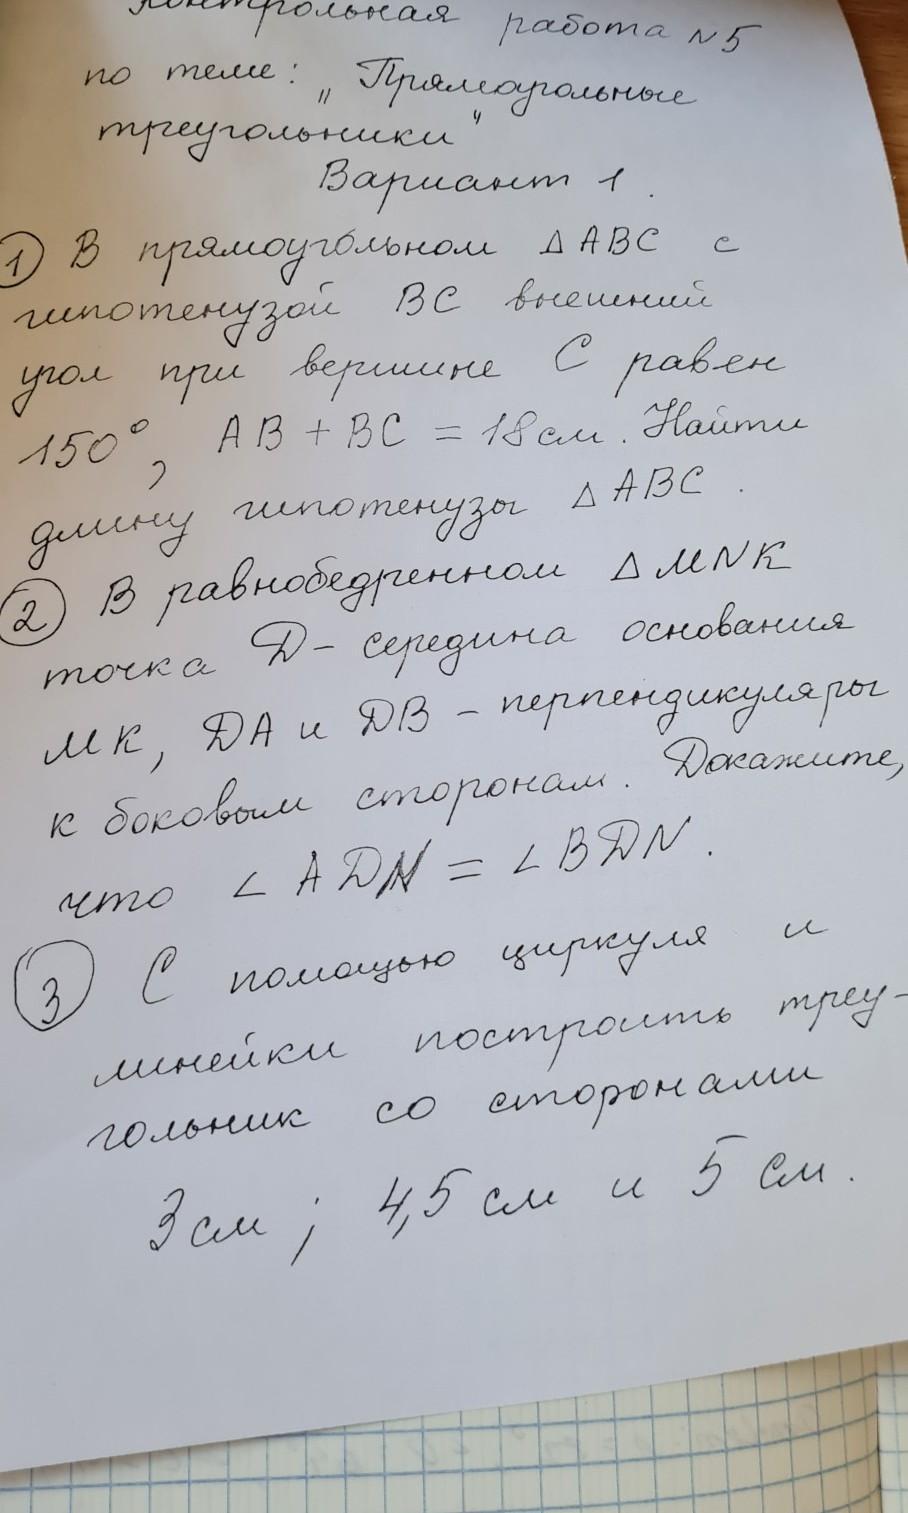 Контрольная работа №5
по теме: „Прямоугольные
треугольники"
Вариант 1.
1) В прямоугольном △ABC с
гипотенузой BC внешний
угол при вершине C равен
150°, AB + BC = 18 см. Найти
длину гипотенузы △ABC.
2) В равнобедренном △MNK
точка D – середина основания
MK, DA и DB – перпендикуляры
к боковым сторонам. Докажите,
что ∠ADN = ∠BDN.
3) С помощью циркуля и
линейки построить треу-
гольник со сторонами
3 см; 4,5 см и 5 см.